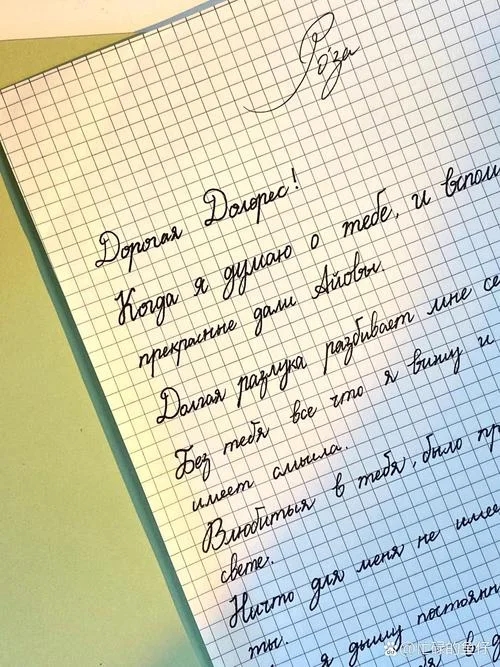 Роза
Дорогая Долорес!
Когда я думаю о тебе, и вспом
прекрасные дали Айовы.
Долгая разлука разбивает мне се
Без тебя все что я вижу и
имеет смысла.
Влюбиться в тебя, было пр
свете.
Ничто для меня не имее
ты.
я дышу постоянн
в д
@忙碌的鱼仔